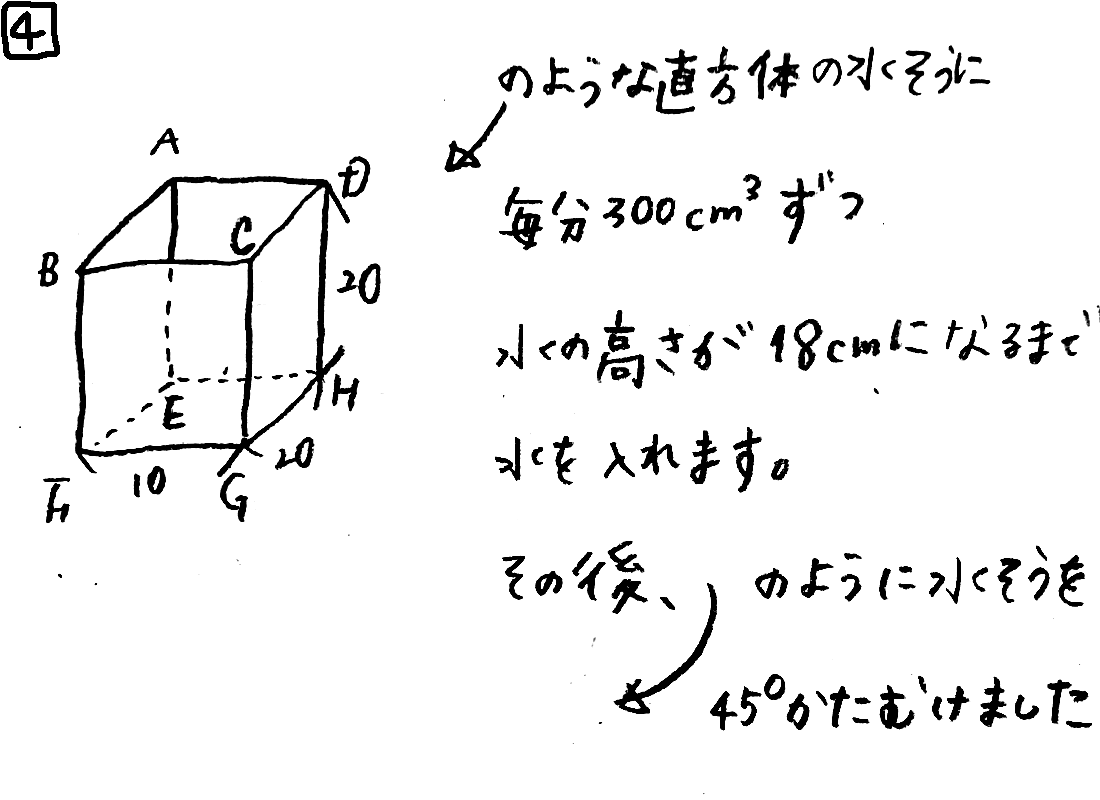 4
のような直方体の水そうに
毎分300cm³ずつ
水の高さが18cmになるまで
水を入れます。
その後、のように水そうを
45°かたむけました
A
D
B
C
20
E
H
20
10
F
G